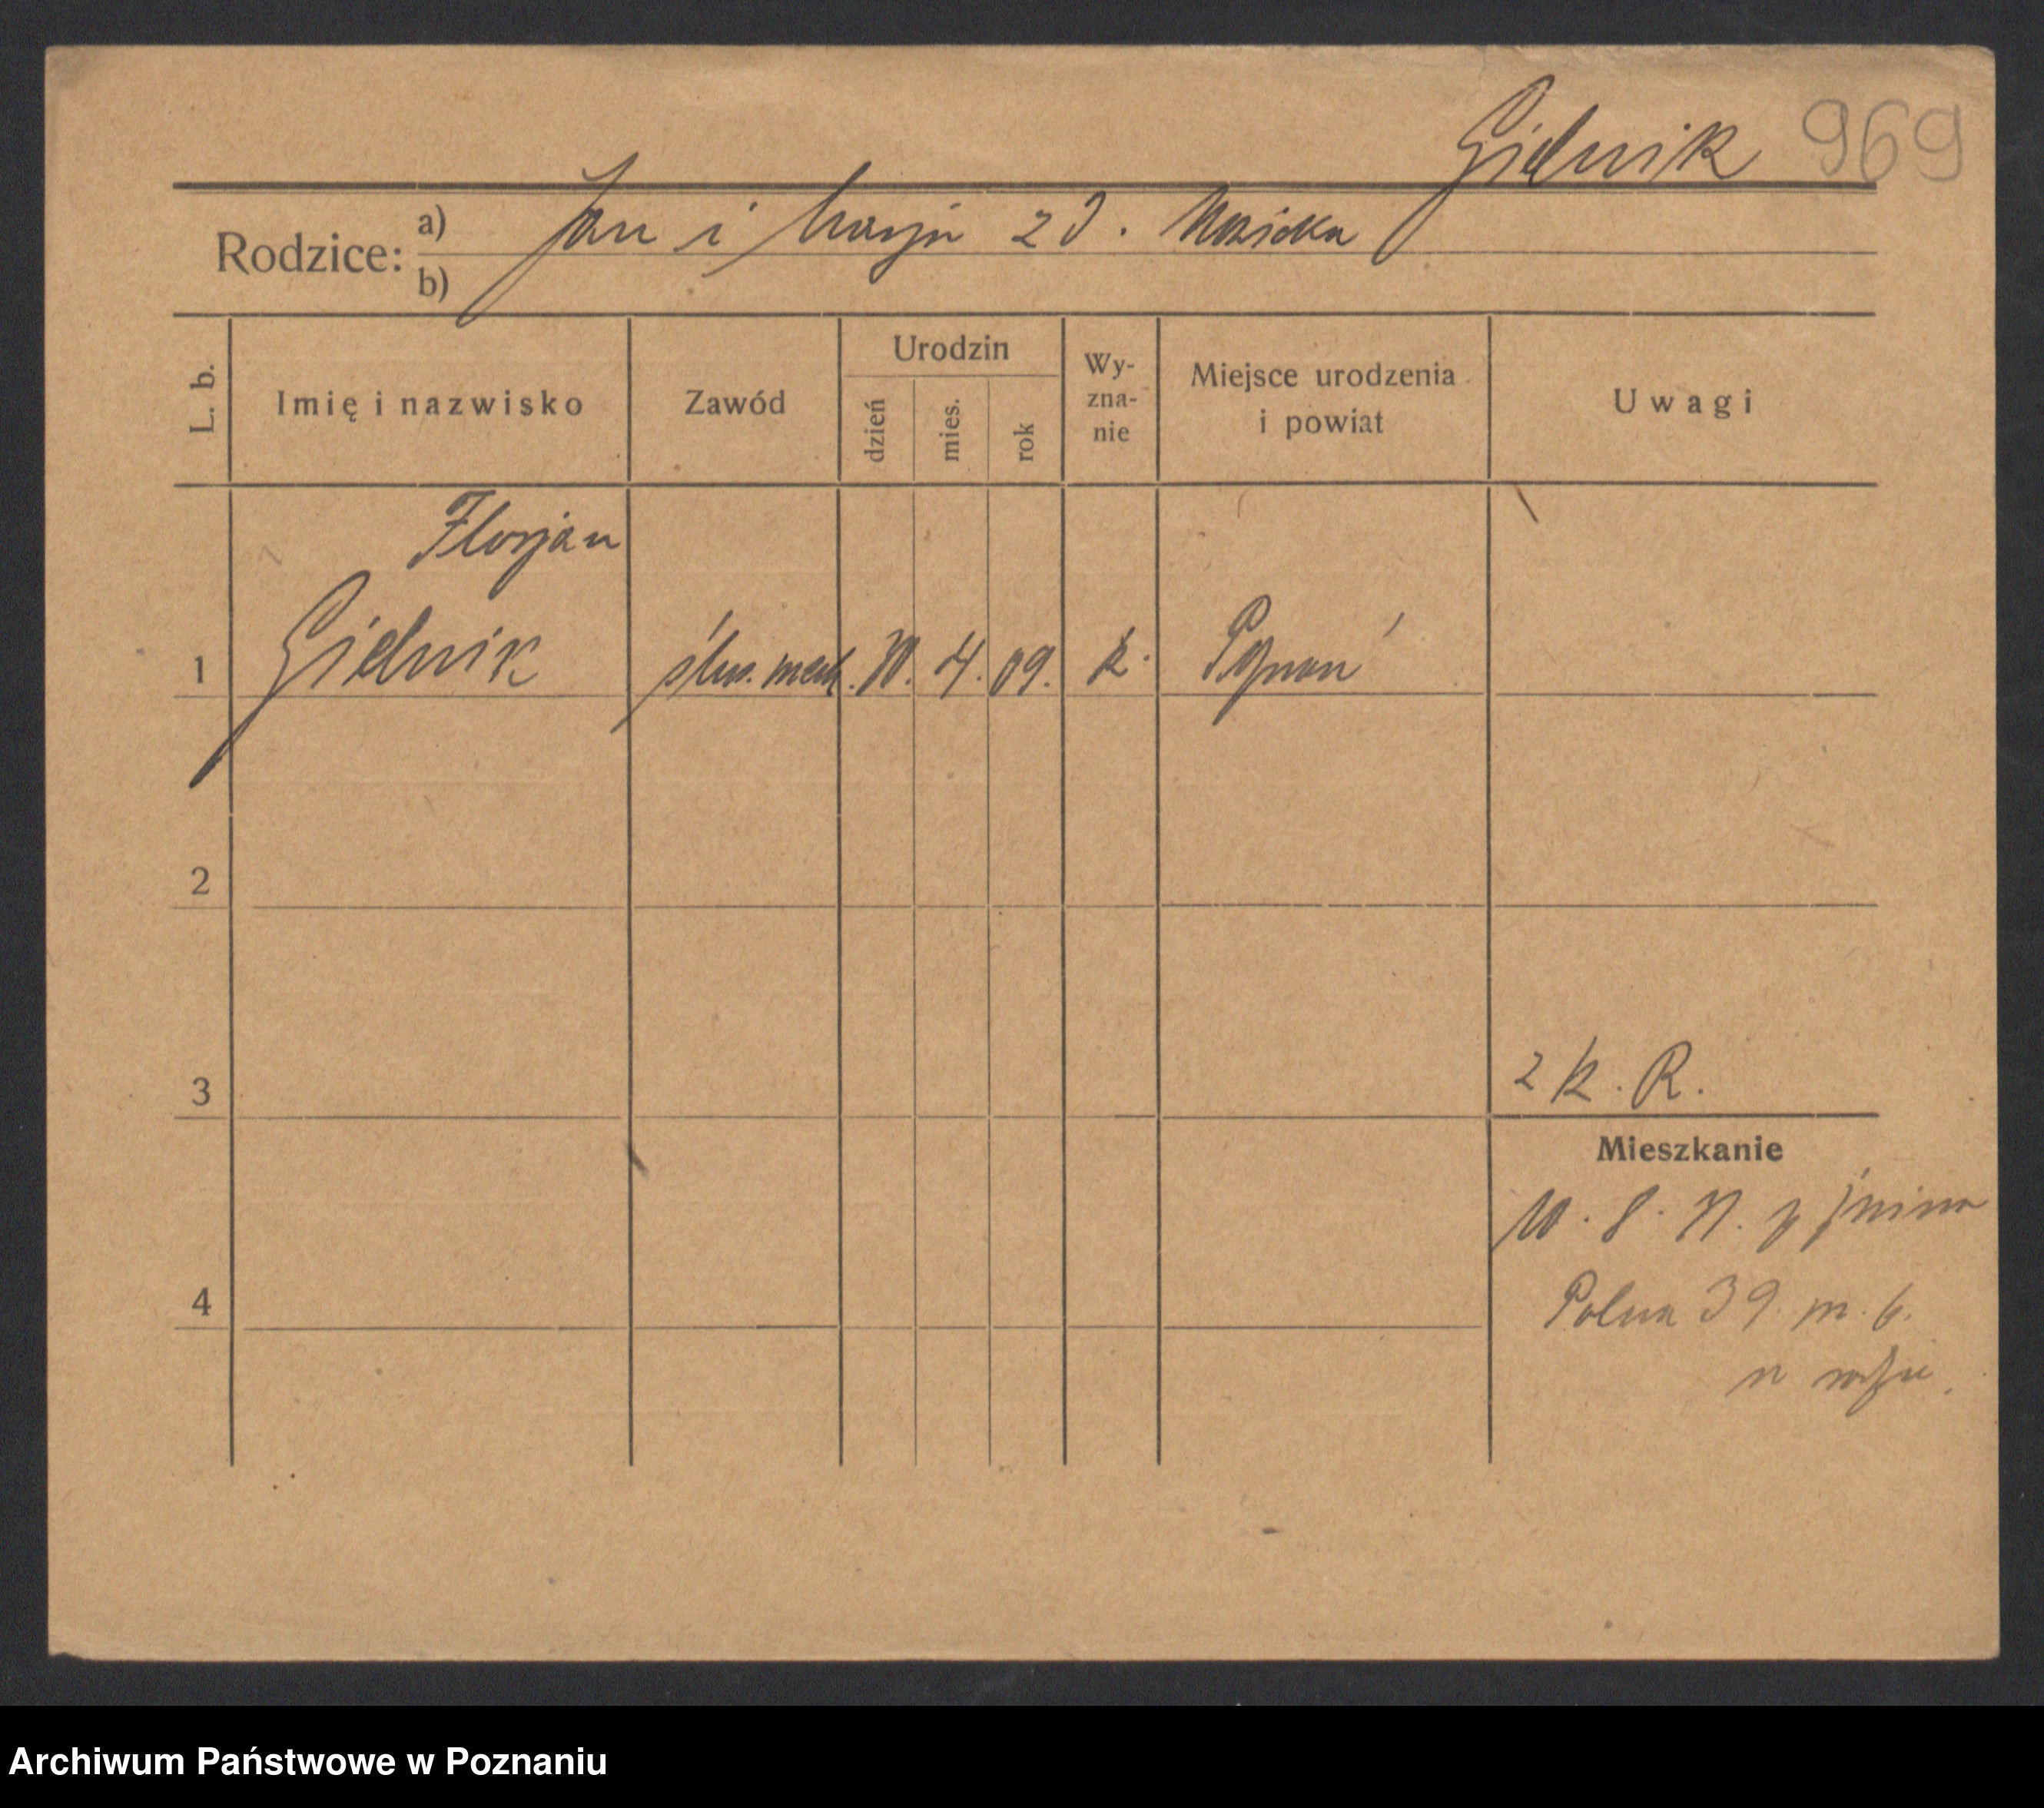 Gielnik 969
Rodzice: a) Jan i Marja z d. Kozicka
b)
L. b.
Imię i nazwisko
Zawód
Urodzin
dzień
mies.
rok
Wy-
zna-
nie
Miejsce urodzenia
i powiat
Uwagi
Florjan
1 Gielnik ślus. mech. 30. 4. 09. k. Poznań
2
3
2 k. R.
Mieszkanie
10. 8. 31. z Żnina
Polna 39. m. 6.
4
Archiwum Państwowe w Poznaniu